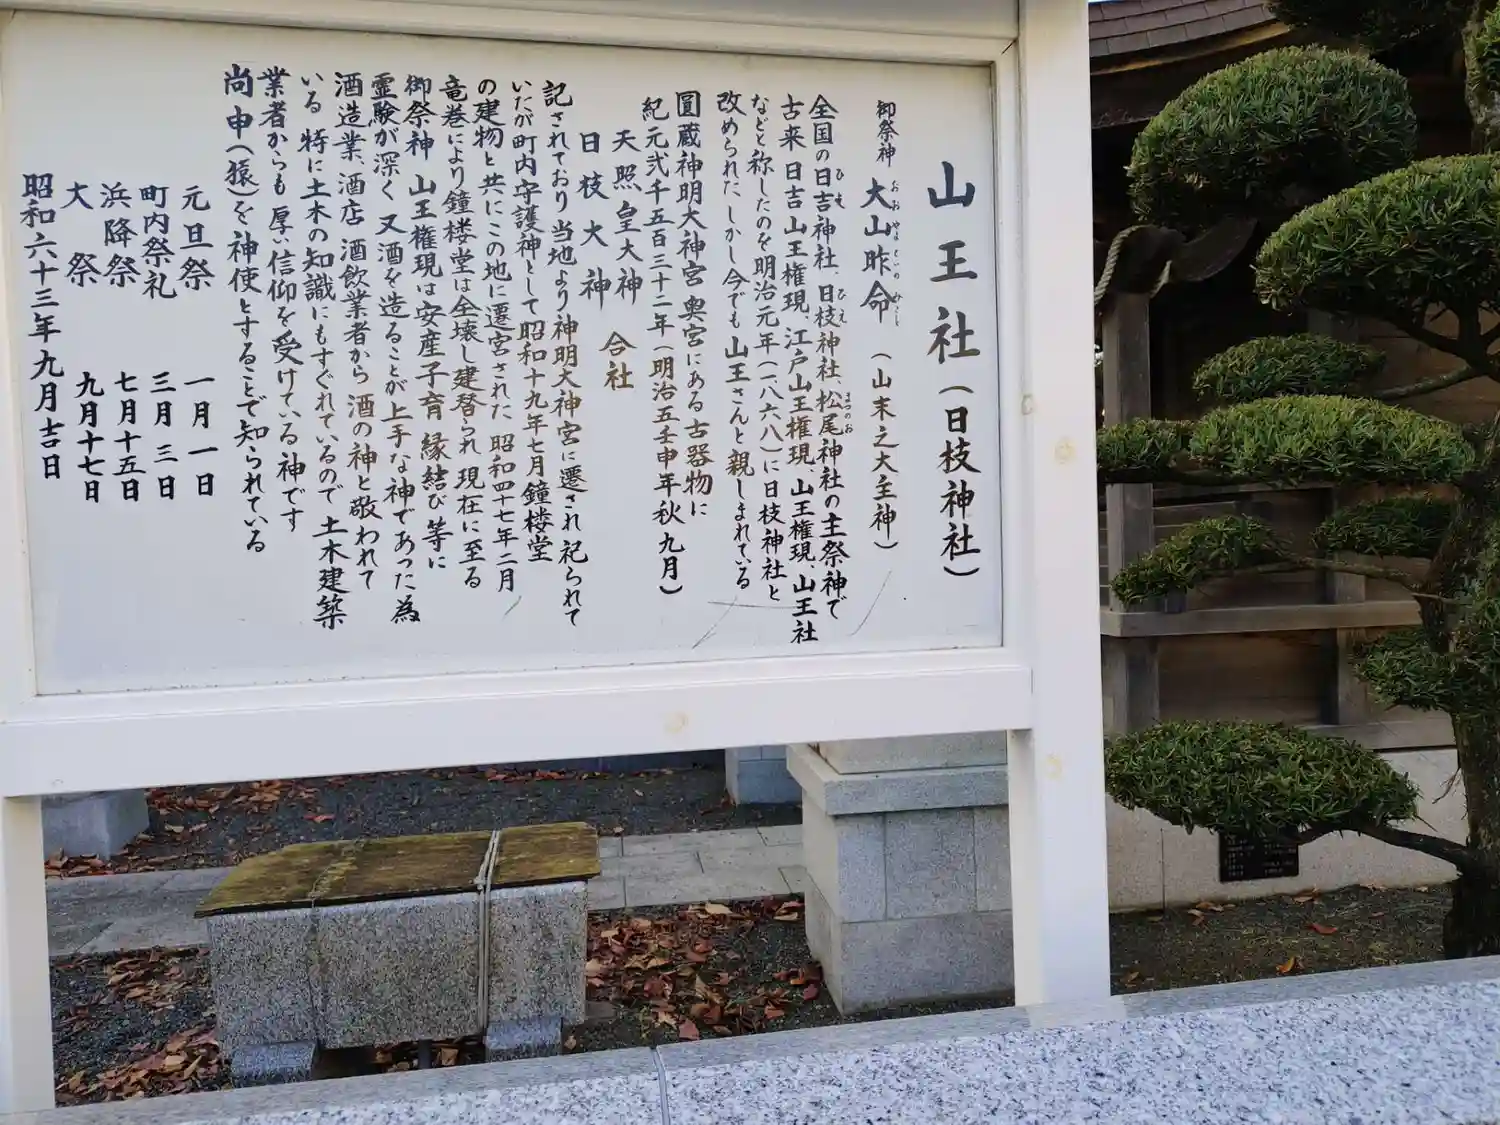 山王社（日枝神社）
御祭神 大山昨命（山末之大主神）
おおやまといのみこと
全国の日吉神社、日枝神社、松尾神社の主祭神で
ひえ ひえ まつのお
古来 日吉山王権現、江戸山王権現、山王権現、山王社
などと称したのを明治元年（一八六八）に日枝神社と
改められた、しかし今でも山王さんと親しまれている
圓蔵神明大神宮 奥宮にある古器物に
紀元弐千五百三十二年（明治五壬申年秋九月）
天照皇大神
日枝大神 合社
記されており当地より神明大神宮に遷され祀られて
いたが町内守護神として昭和十九年七月鐘楼堂
の建物と共にこの地に遷宮された 昭和四十七年二月
竜巻により鐘楼堂は全壊し建替られ現在に至る
御祭神 山王権現は安産子育縁結び等に
霊験が深く又酒を造ることが上手な神であった為
酒造業、酒店 酒飲業者から酒の神と敬われて
いる 特に土木の知識にもすぐれているので土木建築
業者からも厚い信仰を受けている神です
尚申（猿）を神使とすることで知られている
元旦祭 一月一日
町内祭礼 三月三日
浜降祭 七月十五日
大祭 九月十七日
昭和六十三年九月吉日